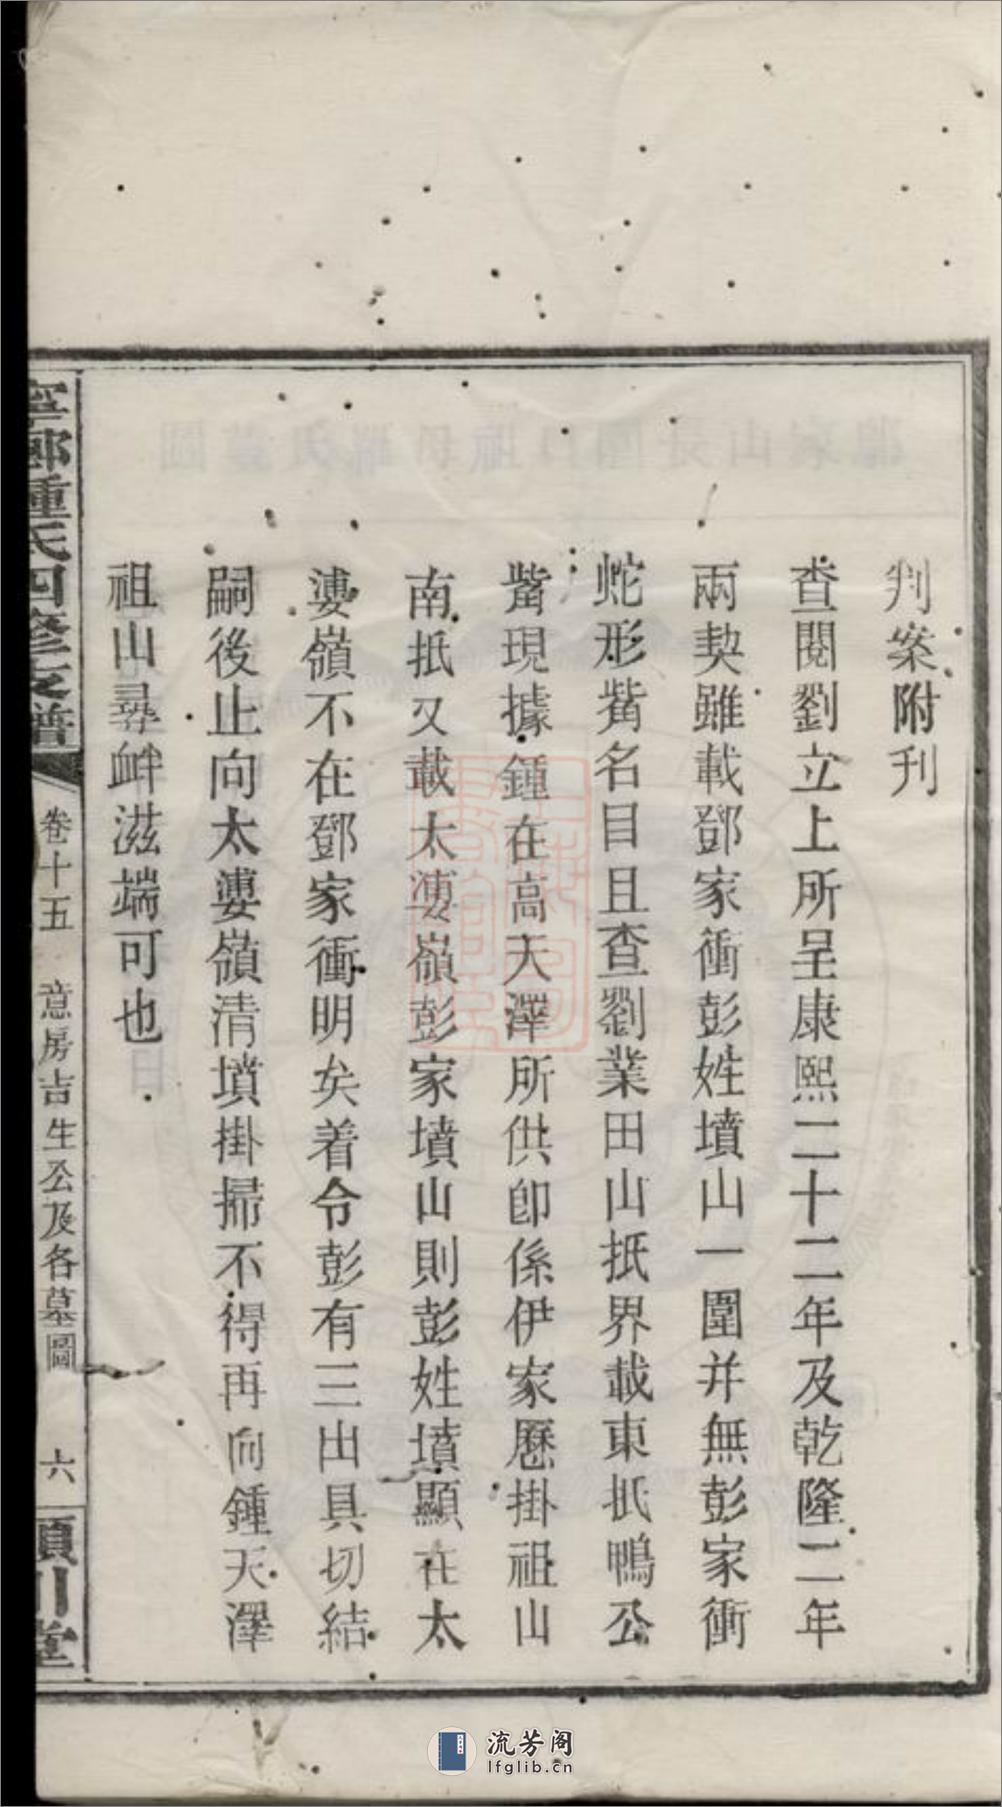 判案附刋
查閱劉立上所呈康熙二十二年及乾隆二年
兩契雖載鄧家衝彭姓墳山一圍并無彭家衝
蛇形觜名目且查劉業田山抵界載東抵鴨公
觜現據鍾在高天澤所供卽係伊家歷掛祖山
南抵又載太婆嶺彭家墳山則彭姓墳顯在太
婆嶺不在鄧家衝明矣着令彭有三出具切結
嗣後止向太婆嶺清墳掛掃不得再向鍾天澤
祖山尋衅滋端可也
寧鄉鍾氏四修支譜
卷十五 意房吉生公及各墓圖 六
潁川堂
流芳阁
lfglib.cn